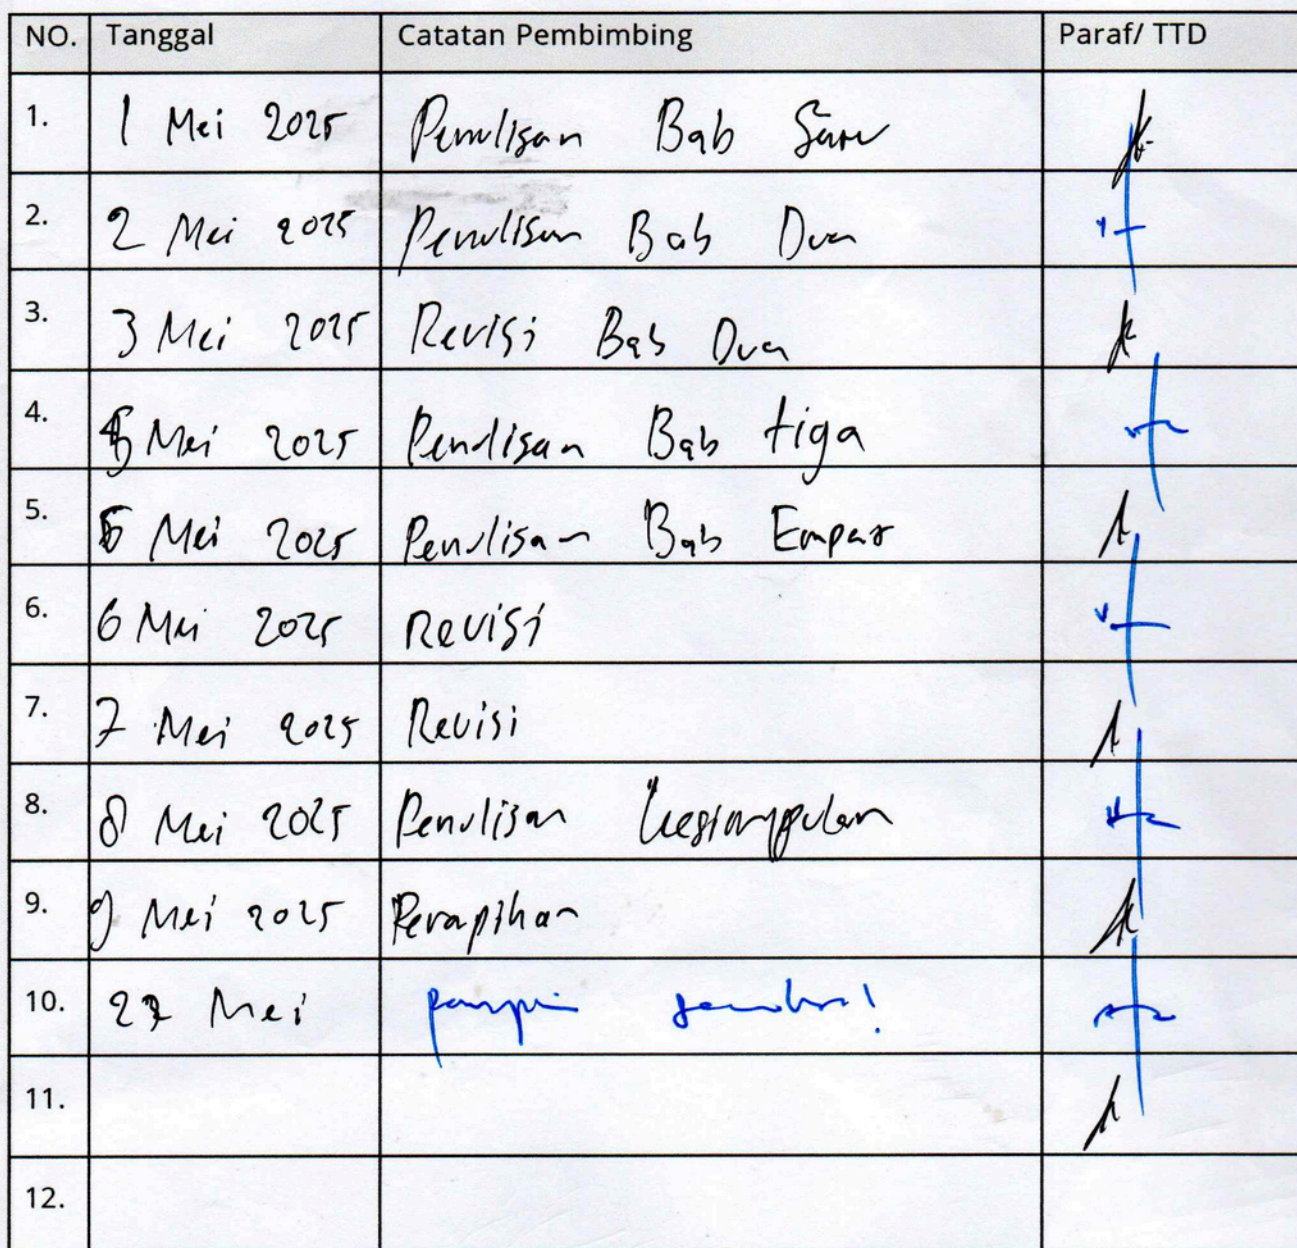 NO. Tanggal Catatan Pembimbing Paraf/ TTD
1. 1 Mei 2025 Penulisan Bab Satu
2. 2 Mei 2025 Penulisan Bab Dua
3. 3 Mei 2025 Revisi Bab Dua
4. Mei 2025 Penulisan Bab tiga
5. 5 Mei 2025 Penulisan Bab Empat
6. 6 Mei 2025 Revisi
7. 7 Mei 2025 Revisi
8. 8 Mei 2025 Penulisan Kesimpulan
9. 9 Mei 2025 Perapihan
10. Mei
11.
12.